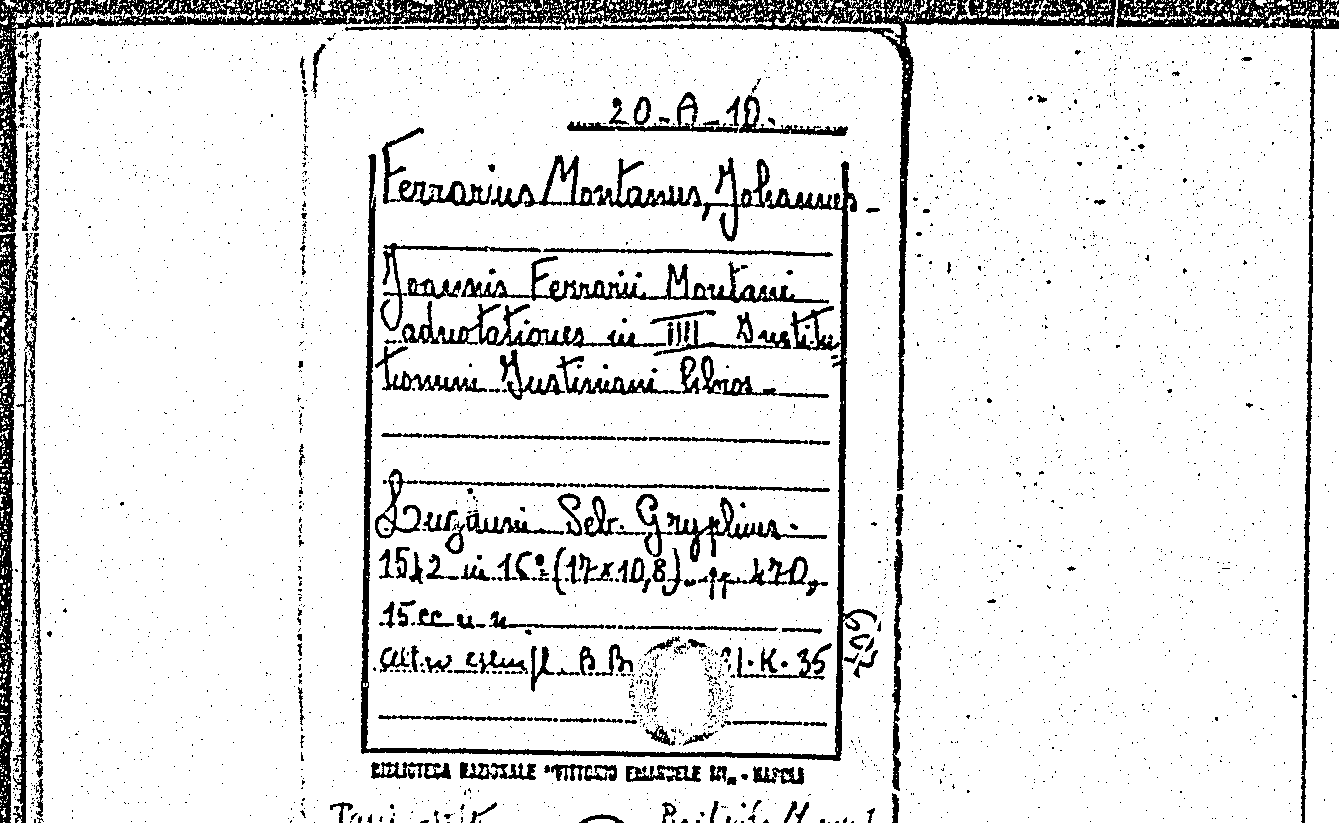 20-A-10.
Ferrarius Montanus, Johannes-
Joannis Ferrarii Montani
adnotationes in IIII Institu=
tionum Justiniani libros-
Lugduni Seb. Gryphius-
1542 in 16º (17x10,8) pp. 470,
15 cc n. n.
altro esempl. B Br K. 35
BIBLIOTECA NAZIONALE "VITTORIO EMANUELE III" - NAPOLI